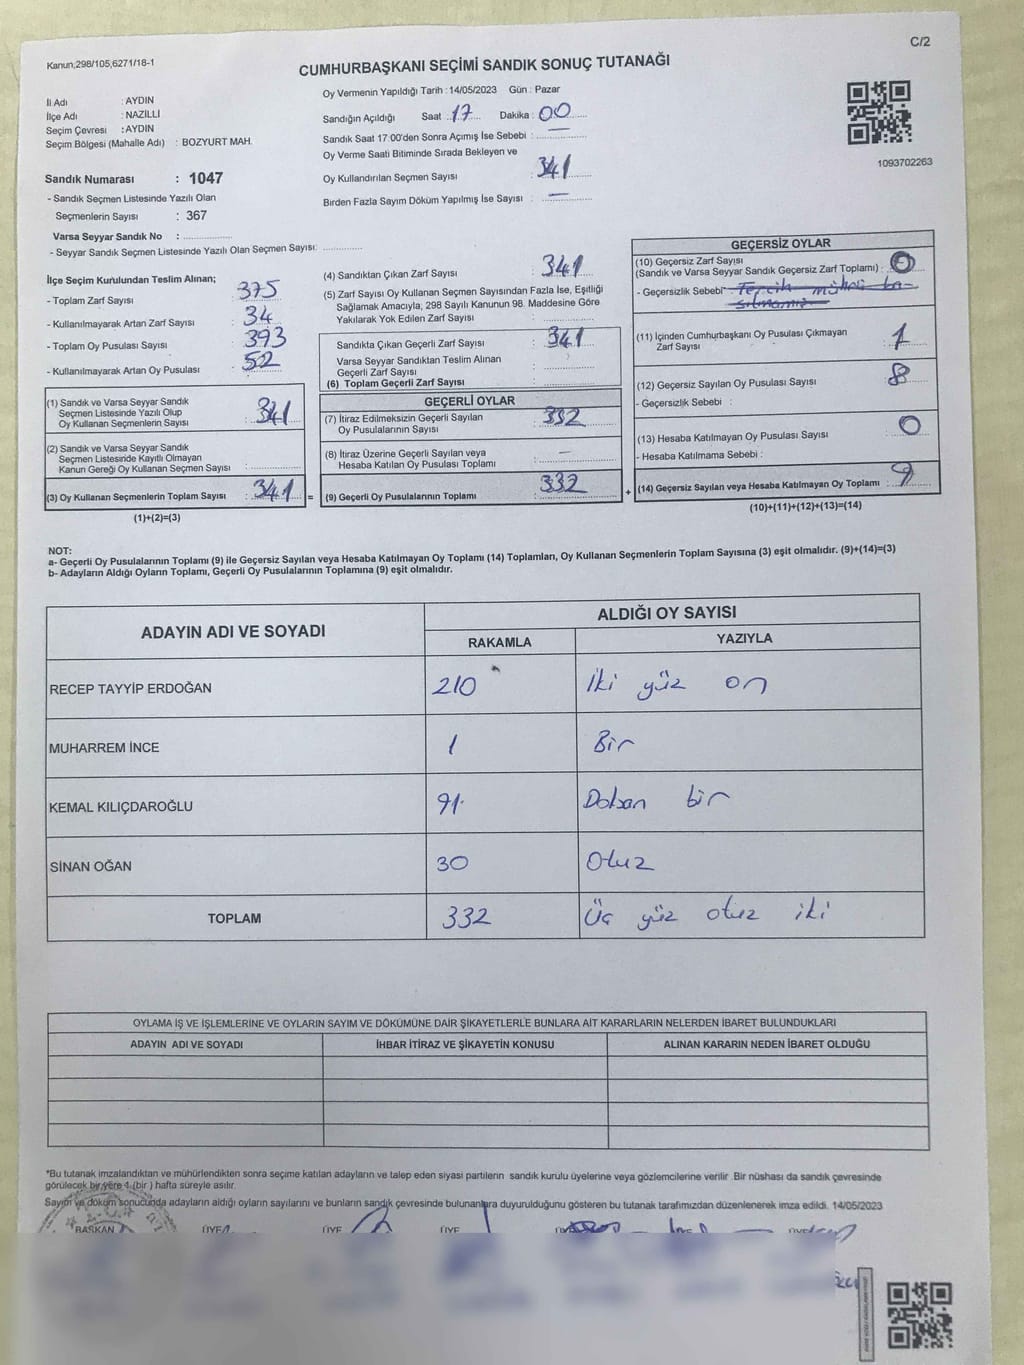 C/2
Kanun,298/105,6271/18-1
CUMHURBAŞKANI SEÇİMİ SANDIK SONUÇ TUTANAĞI
İl Adı : AYDIN
İlçe Adı : NAZİLLİ
Seçim Çevresi : AYDIN
Seçim Bölgesi (Mahalle Adı) : BOZYURT MAH.
Sandık Numarası : 1047
- Sandık Seçmen Listesinde Yazılı Olan
Seçmenlerin Sayısı : 367
Varsa Seyyar Sandık No :
- Seyyar Sandık Seçmen Listesinde Yazılı Olan Seçmen Sayısı:
Oy Vermenin Yapıldığı Tarih : 14/05/2023 Gün : Pazar
Sandığın Açıldığı Saat 17 Dakika : 00
Sandık Saat 17:00'den Sonra Açımış İse Sebebi : —
Oy Verme Saati Bitiminde Sırada Bekleyen ve
Oy Kullandırılan Seçmen Sayısı : 341
Birden Fazla Sayım Döküm Yapılmış İse Sayısı : —
1093702263
İlçe Seçim Kurulundan Teslim Alınan;
- Toplam Zarf Sayısı : 375
- Kullanılmayarak Artan Zarf Sayısı : 34
- Toplam Oy Pusulası Sayısı : 393
- Kullanılmayarak Artan Oy Pusulası : 52
(1) Sandık ve Varsa Seyyar Sandık
Seçmen Listesinde Yazılı Olup
Oy Kullanan Seçmenlerin Sayısı : 341
(2) Sandık ve Varsa Seyyar Sandık
Seçmen Listesinde Kayıtlı Olmayan
Kanun Gereği Oy Kullanan Seçmen Sayısı :
(3) Oy Kullanan Seçmenlerin Toplam Sayısı : 341 =
(1)+(2)=(3)
(4) Sandıktan Çıkan Zarf Sayısı : 341
(5) Zarf Sayısı Oy Kullanan Seçmen Sayısından Fazla İse, Eşitliği
Sağlamak Amacıyla, 298 Sayılı Kanunun 98. Maddesine Göre
Yakılarak Yok Edilen Zarf Sayısı :
Sandıkta Çıkan Geçerli Zarf Sayısı : 341
Varsa Seyyar Sandıktan Teslim Alınan
Geçerli Zarf Sayısı :
(6) Toplam Geçerli Zarf Sayısı :
GEÇERLİ OYLAR
(7) İtiraz Edilmeksizin Geçerli Sayılan
Oy Pusulalarının Sayısı : 332
(8) İtiraz Üzerine Geçerli Sayılan veya
Hesaba Katılan Oy Pusulası Toplamı : —
(9) Geçerli Oy Pusulalarının Toplamı : 332 +
GEÇERSİZ OYLAR
(10) Geçersiz Zarf Sayısı
(Sandık ve Varsa Seyyar Sandık Geçersiz Zarf Toplamı) : 0
- Geçersizlik Sebebi : Tercih mührü ba-
sılmamış
(11) İçinden Cumhurbaşkanı Oy Pusulası Çıkmayan
Zarf Sayısı : 1
(12) Geçersiz Sayılan Oy Pusulası Sayısı : 8
- Geçersizlik Sebebi :
(13) Hesaba Katılmayan Oy Pusulası Sayısı : 0
- Hesaba Katılmama Sebebi :
(14) Geçersiz Sayılan veya Hesaba Katılmayan Oy Toplamı : 9
(10)+(11)+(12)+(13)=(14)
NOT:
a- Geçerli Oy Pusulalarının Toplamı (9) ile Geçersiz Sayılan veya Hesaba Katılmayan Oy Toplamı (14) Toplamları, Oy Kullanan Seçmenlerin Toplam Sayısına (3) eşit olmalıdır. (9)+(14)=(3)
b- Adayların Aldığı Oyların Toplamı, Geçerli Oy Pusulalarının Toplamına (9) eşit olmalıdır.
ADAYIN ADI VE SOYADI ALDIĞI OY SAYISI
RAKAMLA YAZIYLA
RECEP TAYYİP ERDOĞAN 210 İki yüz on
MUHARREM İNCE 1 Bir
KEMAL KILIÇDAROĞLU 91 Doksan bir
SİNAN OĞAN 30 Otuz
TOPLAM 332 Üç yüz otuz iki
OYLAMA İŞ VE İŞLEMLERİNE VE OYLARIN SAYIM VE DÖKÜMÜNE DAİR ŞİKAYETLERLE BUNLARA AİT KARARLARIN NELERDEN İBARET BULUNDUKLARI
ADAYIN ADI VE SOYADI İHBAR İTİRAZ VE ŞİKAYETİN KONUSU ALINAN KARARIN NEDEN İBARET OLDUĞU
*Bu tutanak imzalandıktan ve mühürlendikten sonra seçime katılan adayların ve talep eden siyasi partilerin sandık kurulu üyelerine veya gözlemcilerine verilir. Bir nüshası da sandık çevresinde
görülecek bir yere 1 (bir ) hafta süreyle asılır.
Sayım ve döküm sonucunda adayların aldığı oyların sayılarını ve bunların sandık çevresinde bulunanlara duyurulduğunu gösteren bu tutanak tarafımızdan düzenlenerek imza edildi. 14/05/2023
BAŞKAN ÜYE ÜYE ÜYE